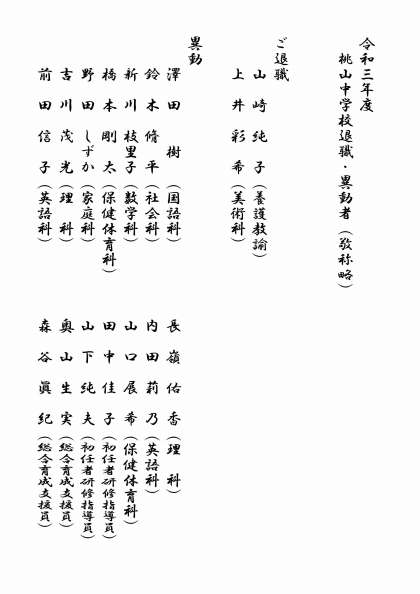 令和三年度
桃山中学校退職・異動者（敬称略）
ご退職
山崎純子（養護教諭）
上井彩希（美術科）
異動
澤田樹（国語科）
鈴木脩平（社会科）
新川枝里子（数学科）
橋本剛太（保健体育科）
野田しずか（家庭科）
吉川茂光（理科）
前田信子（英語科）
長嶺佑香（理科）
内田莉乃（英語科）
山口展希（保健体育科）
田中佳子（初任者研修指導員）
山下純夫（初任者研修指導員）
奥山生実（総合育成支援員）
森谷眞紀（総合育成支援員）